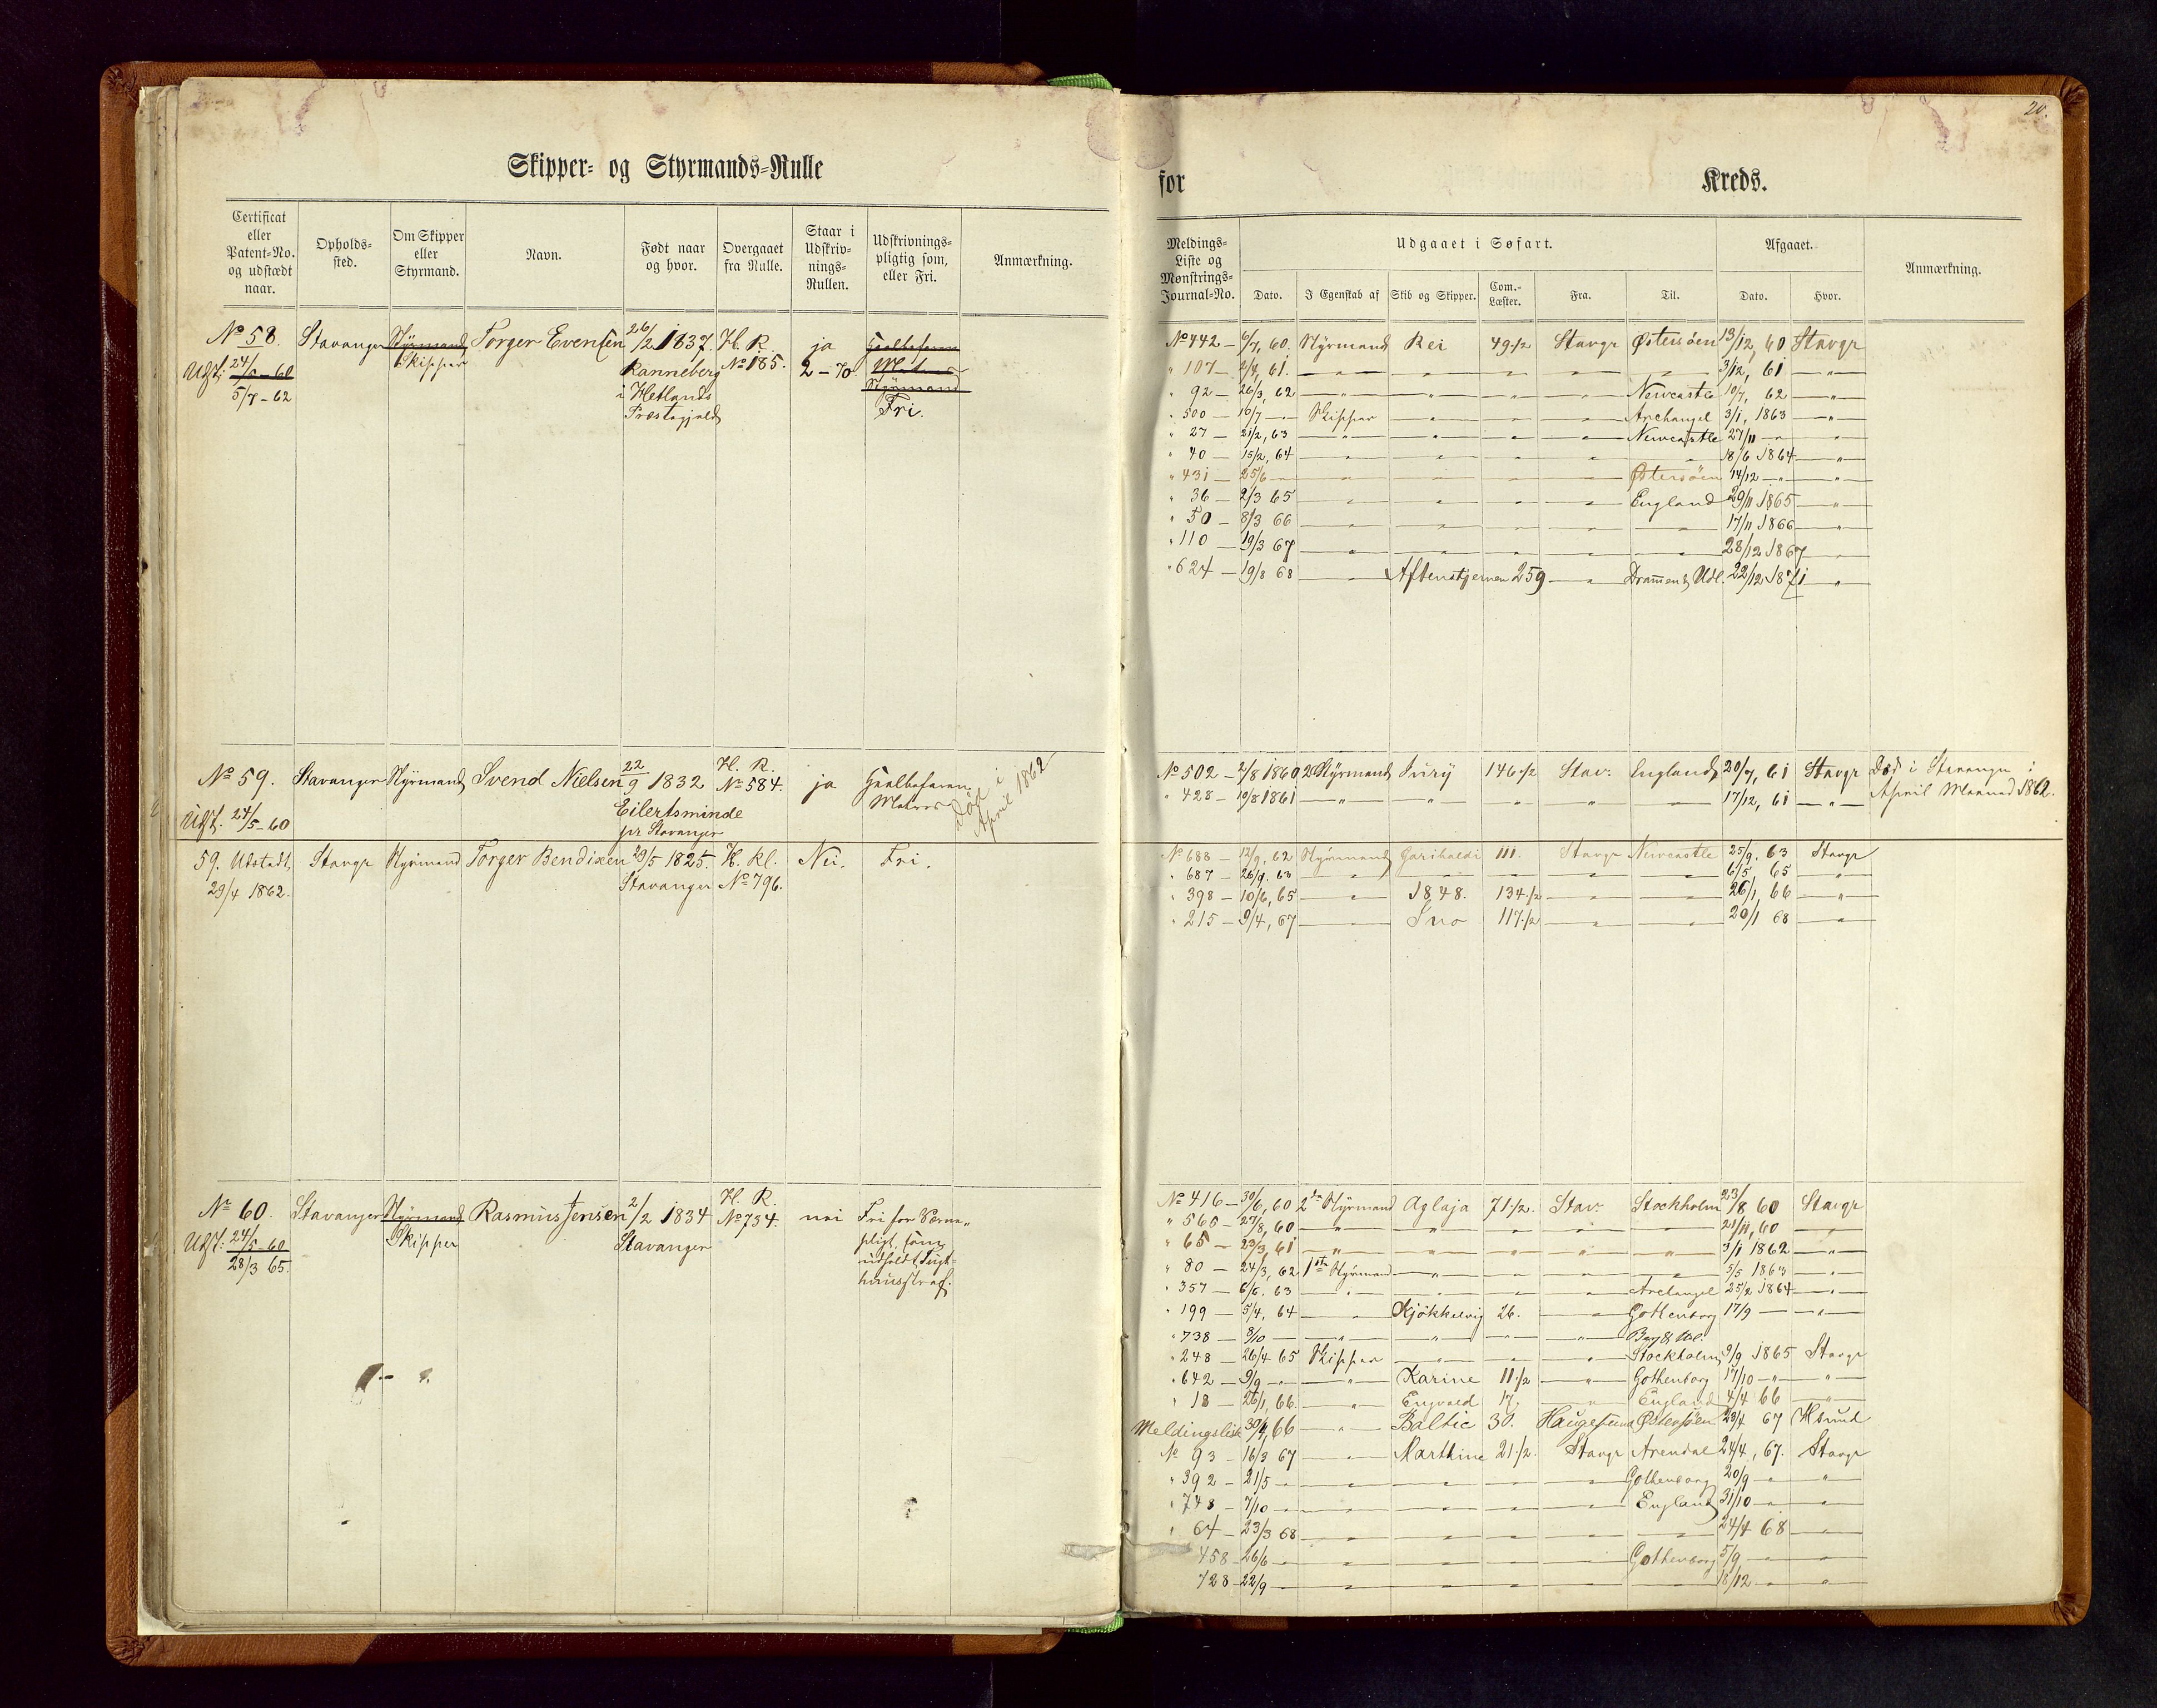 20.
Skipper- og Styrmands-Rulle
for Kreds.
Certificat eller Patent-No. og udstædt naar.
Opholds-sted.
Om Skipper eller Styrmand.
Navn.
Født naar og hvor.
Overgaaet fra Rulle.
Staar i Udskriv-nings-Rullen.
Udskrivnings-pligtig som, eller Fri.
Anmærkning.
Meldings-Liste og Mønstrings-Journal-No.
Udgaaet i Søfart.
Dato.
I Egenskab af
Skib og Skipper.
Com.-Læster.
Fra.
Til.
Afgaaet.
Dato.
Hvor.
Anmærkning.
No 58. Stavanger Styrmand Torger Evensen 26/2 1837. H. R. ja
Skipper Ranneberg No 185. 2-70
Udst: 24/5-60 i Hetlands Styrmand
5/7-62 Præstegjeld Fri.
No 442 - 6/7, 60. Styrmand Rei 49 1/2 Stavgr Østersöen 13/12, 60 Stavgr
" 107 - 2/4, 61. " " " " " 3/12, 61 "
" 92 - 26/3, 62 " " " " Newcastle 10/7, 62 "
" 500 - 10/7 - Skipper " " " Archangel 3/1, 1863 "
" 27 - 21/2, 63 " " " " Newcastle 27/11 - "
" 40 - 15/2, 64 " " " " " 18/6 1864 "
" 431 - 25/6 - " " " " Østersöen 14/12 - "
" 36 - 2/3 65 " " " " England 29/11 1865 "
" 50 - 8/3 66 " " " " " 17/11 1866 "
" 110 - 19/3 67 " " " " " 28/12 1867 "
" 624 - 19/8 68 " Aftenstjernen 259 " Drammen & Udl. 22/12 1871 "
No 59. Stavanger Styrmand Svend Nielsen 22/9 1832 H. R. No 584. ja Halvbefaren Matros
Død i April 1862
Eilertsminde
Udst. 24/5-60 pr Stavanger
No 502 - 2/8 1860 2 Styrmand Jury 146 1/2 Stav. England 20/7, 61 Stavgr Død i Stavanger i
" 428 - 10/8 1861 " " " " " 17/12, 61 " April Maaned 1862.
59. Udstædt Stavgr Styrmand Torger Bendixen 29/5 1825. H. Rl. Nei. Fri.
29/4 1862. Stavanger No 796.
No 688 - 12/9, 62 Styrmand Garibaldi 111. Stavgr Newcastle 25/9. 63 Stavgr
" 687 - 26/9, 63 " " " " " 6/5 65 "
" 398 - 10/6, 65 " 1848. 134 1/2 " " 26/1, 66 "
" 215 - 9/4, 67 " Sno 117 1/2 " " 20/1 68 "
No 60. Stavanger Styrmand Rasmus Jensen 2/2 1834 H. R. No 734. nei Fri for Værne-
Skipper Stavanger pligt, som
Udst: 24/5-60 udholdt Tugt-
28/3 65. huusstraf.
No 416 - 30/6, 60 2den Styrmand Aglaja 71 1/2. Stav. Stockholm 23/8 60 Stavgr
" 565 - 27/8, 60 " " " " " 21/11, 60 "
" 65 - 23/3, 61 " " " " " 3/1 1862 "
" 80 - 24/3, 62 1ste Styrmand " " " " 5/5 1863 "
" 357 - 6/6. 63 " " " " Archangel 25/2 1864 "
" 199 - 5/4, 64 " Kjökkelvig 26. " Gothenborg 17/9 - "
" 738 - 8/10 - " " " " Berg & Udl.
" 248 - 26/4 65 Skipper " " " Stockholm 9/9 1865 Stavgr
" 642 - 9/9 - " Karine 11 1/2 " Gothenborg 17/10 - "
" 18 - 26/1, 66. " Engvald 17 " England 4/4 66 "
Meldingsliste 30/4, 66 " Baltic 30. Haugesund Østersøen 23/4 67 Hsund
No 93 - 16/3 67 " Marthine 21 1/2. Stavgr Arendal 24/4, 67. Stavgr
" 392 - 21/5 - " " " " Gothenborg 20/9 - "
" 748 - 7/10 - " " " " England 31/10 - "
" 64 - 23/3 68 " " " " " 24/4 68 "
458 - 26/6 - " " " " Gothenborg 5/9 - "
728 - 22/9 - " " " " " 18/12 - "